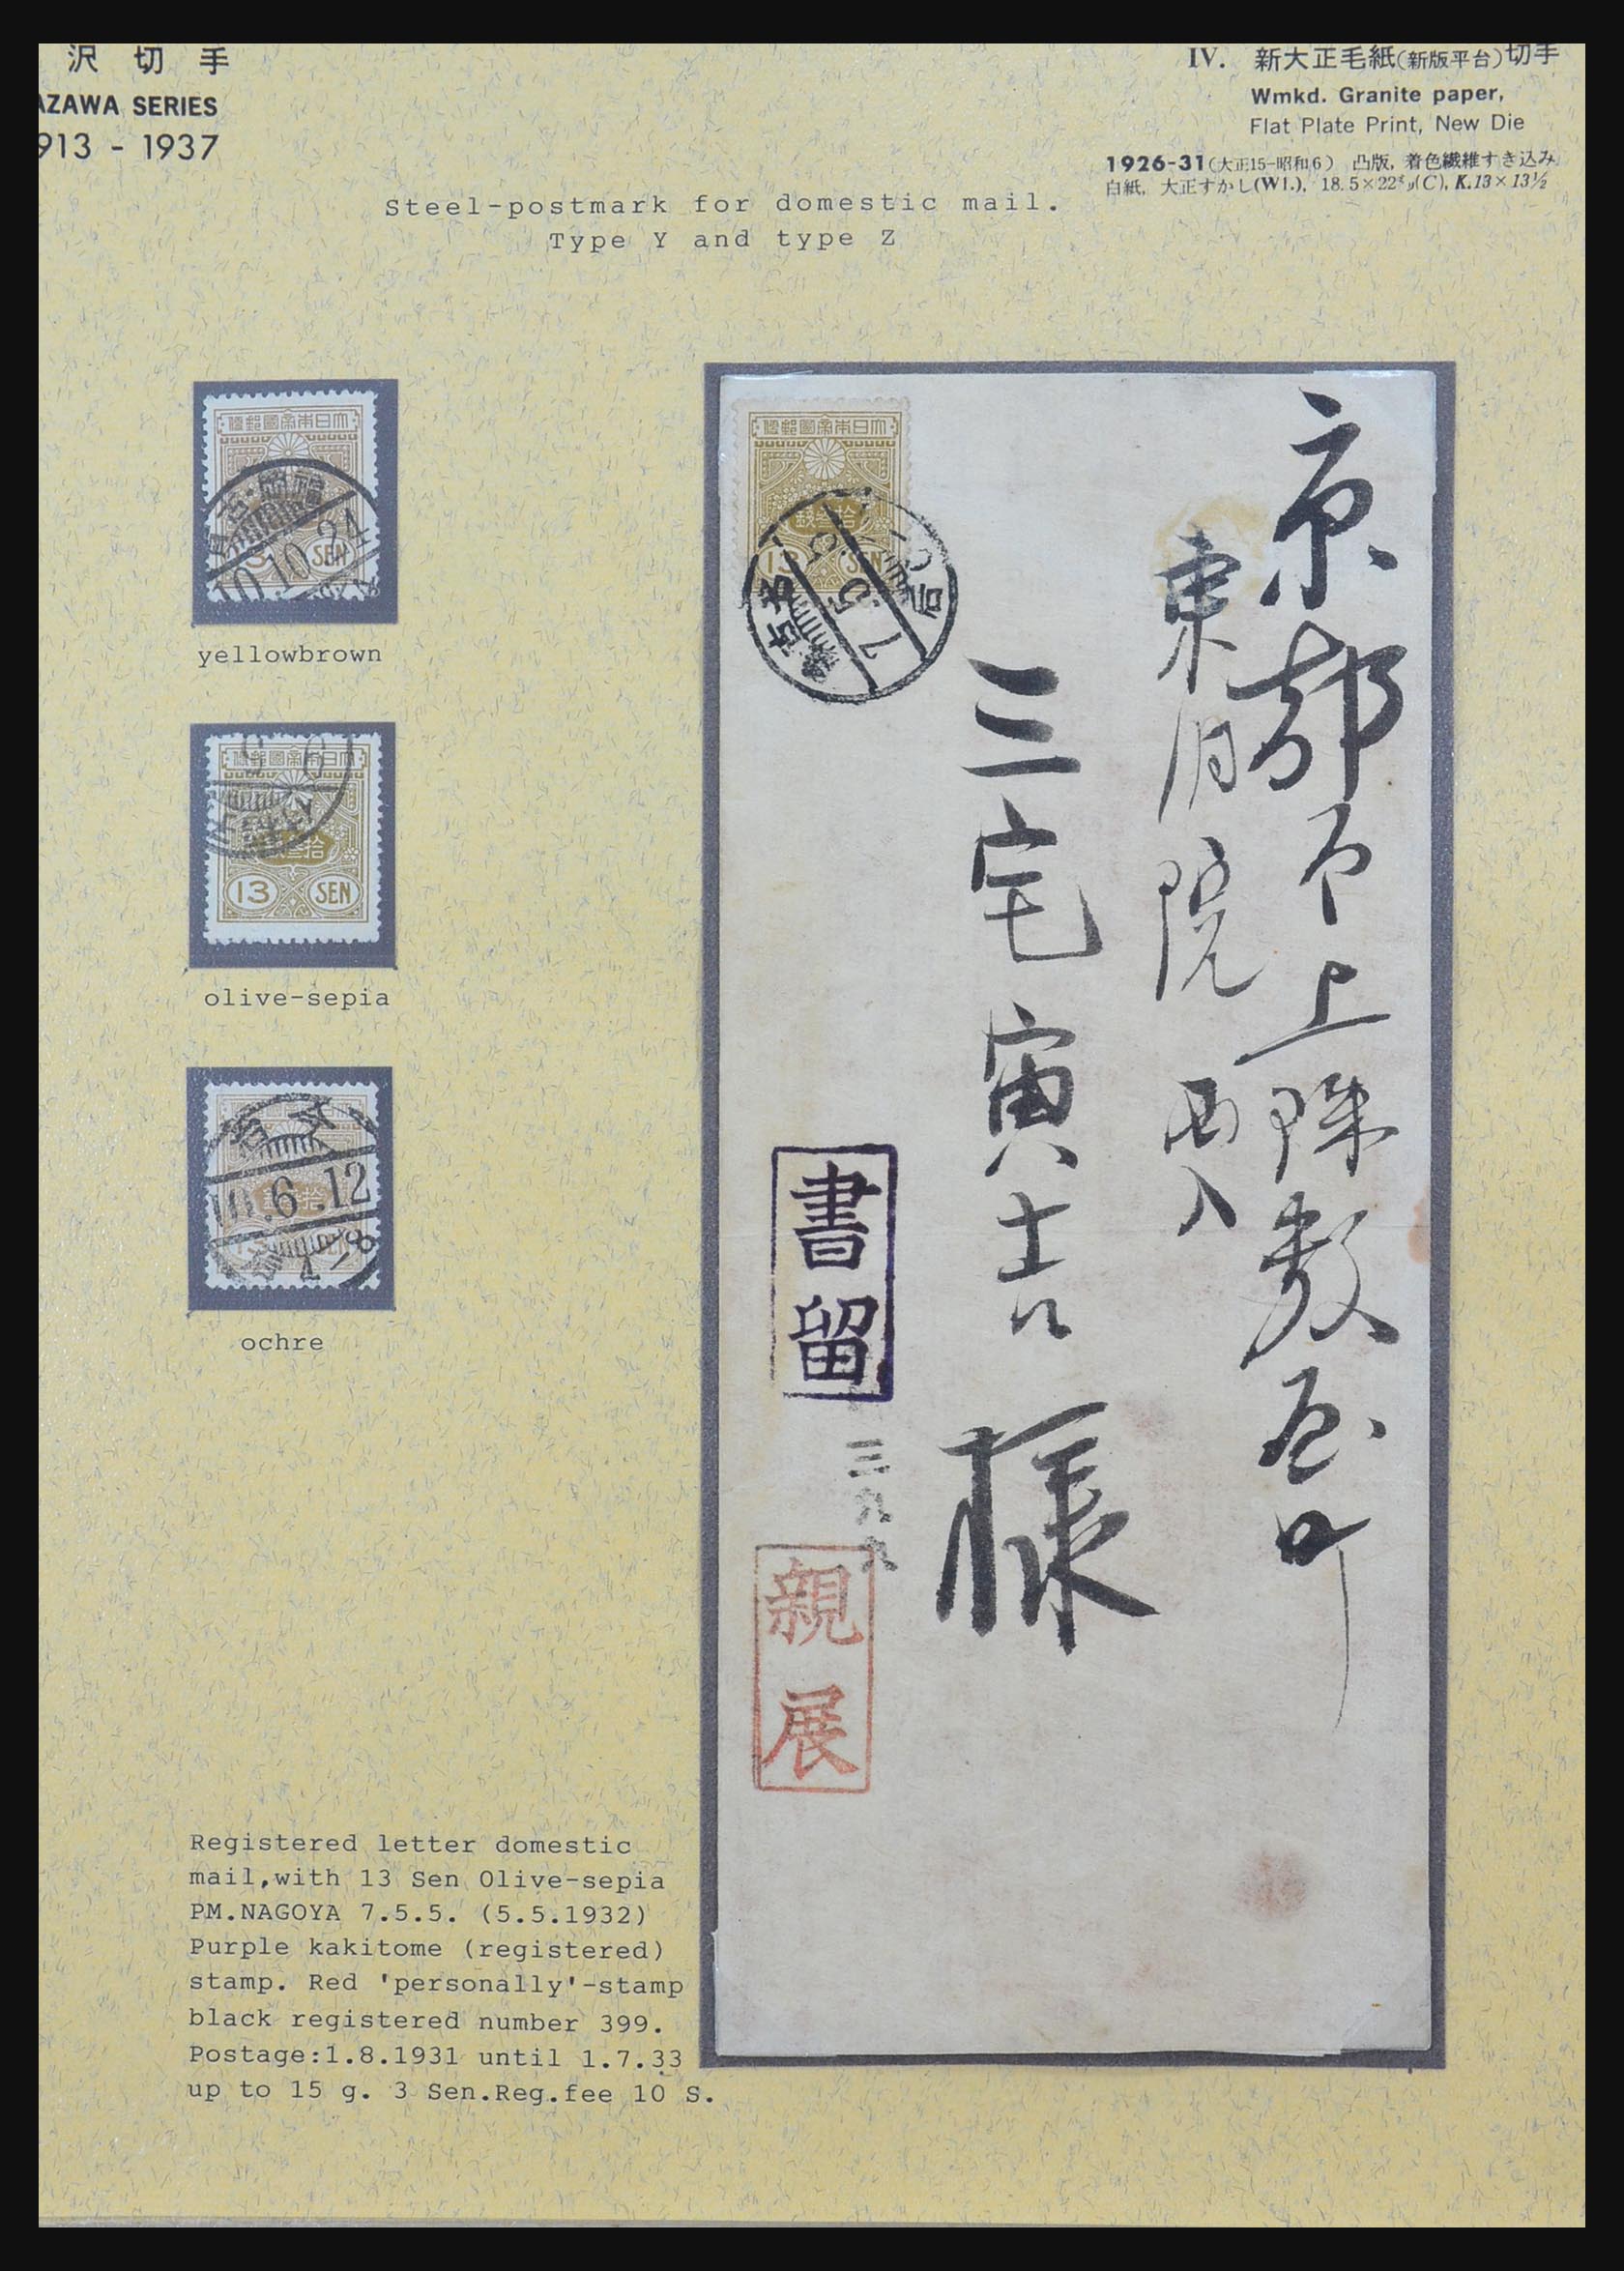 沢切手
AZAWA SERIES
913 - 1937
IV. 新大正毛紙(新版平台)切手
Wmkd. Granite paper,
Flat Plate Print, New Die
1926-31(大正15-昭和6) 凸版, 着色繊維すき込み
白紙, 大正すかし(W1.), 18.5×22㍉(C), K.13×13½
Steel-postmark for domestic mail.
Type Y and type Z
便郵國帝本日大
10.10.24
SEN
yellowbrown
便郵國帝本日大
拾
13 SEN
olive-sepia
6.12
ochre
便郵國帝本日大
銭参拾
13 SEN
名古屋
7.5.5
京都市上珠数屋町
東洞院西入
三宅寅吉様
書留
三九九
親展
Registered letter domestic
mail,with 13 Sen Olive-sepia
PM.NAGOYA 7.5.5. (5.5.1932)
Purple kakitome (registered)
stamp. Red 'personally'-stamp
black registered number 399.
Postage:1.8.1931 until 1.7.33
up to 15 g. 3 Sen.Reg.fee 10 S.